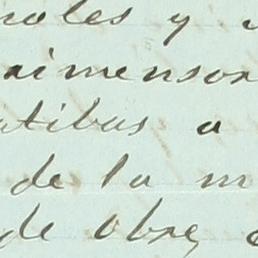 noles y
rimensor
atibus a
de la m
de obre,